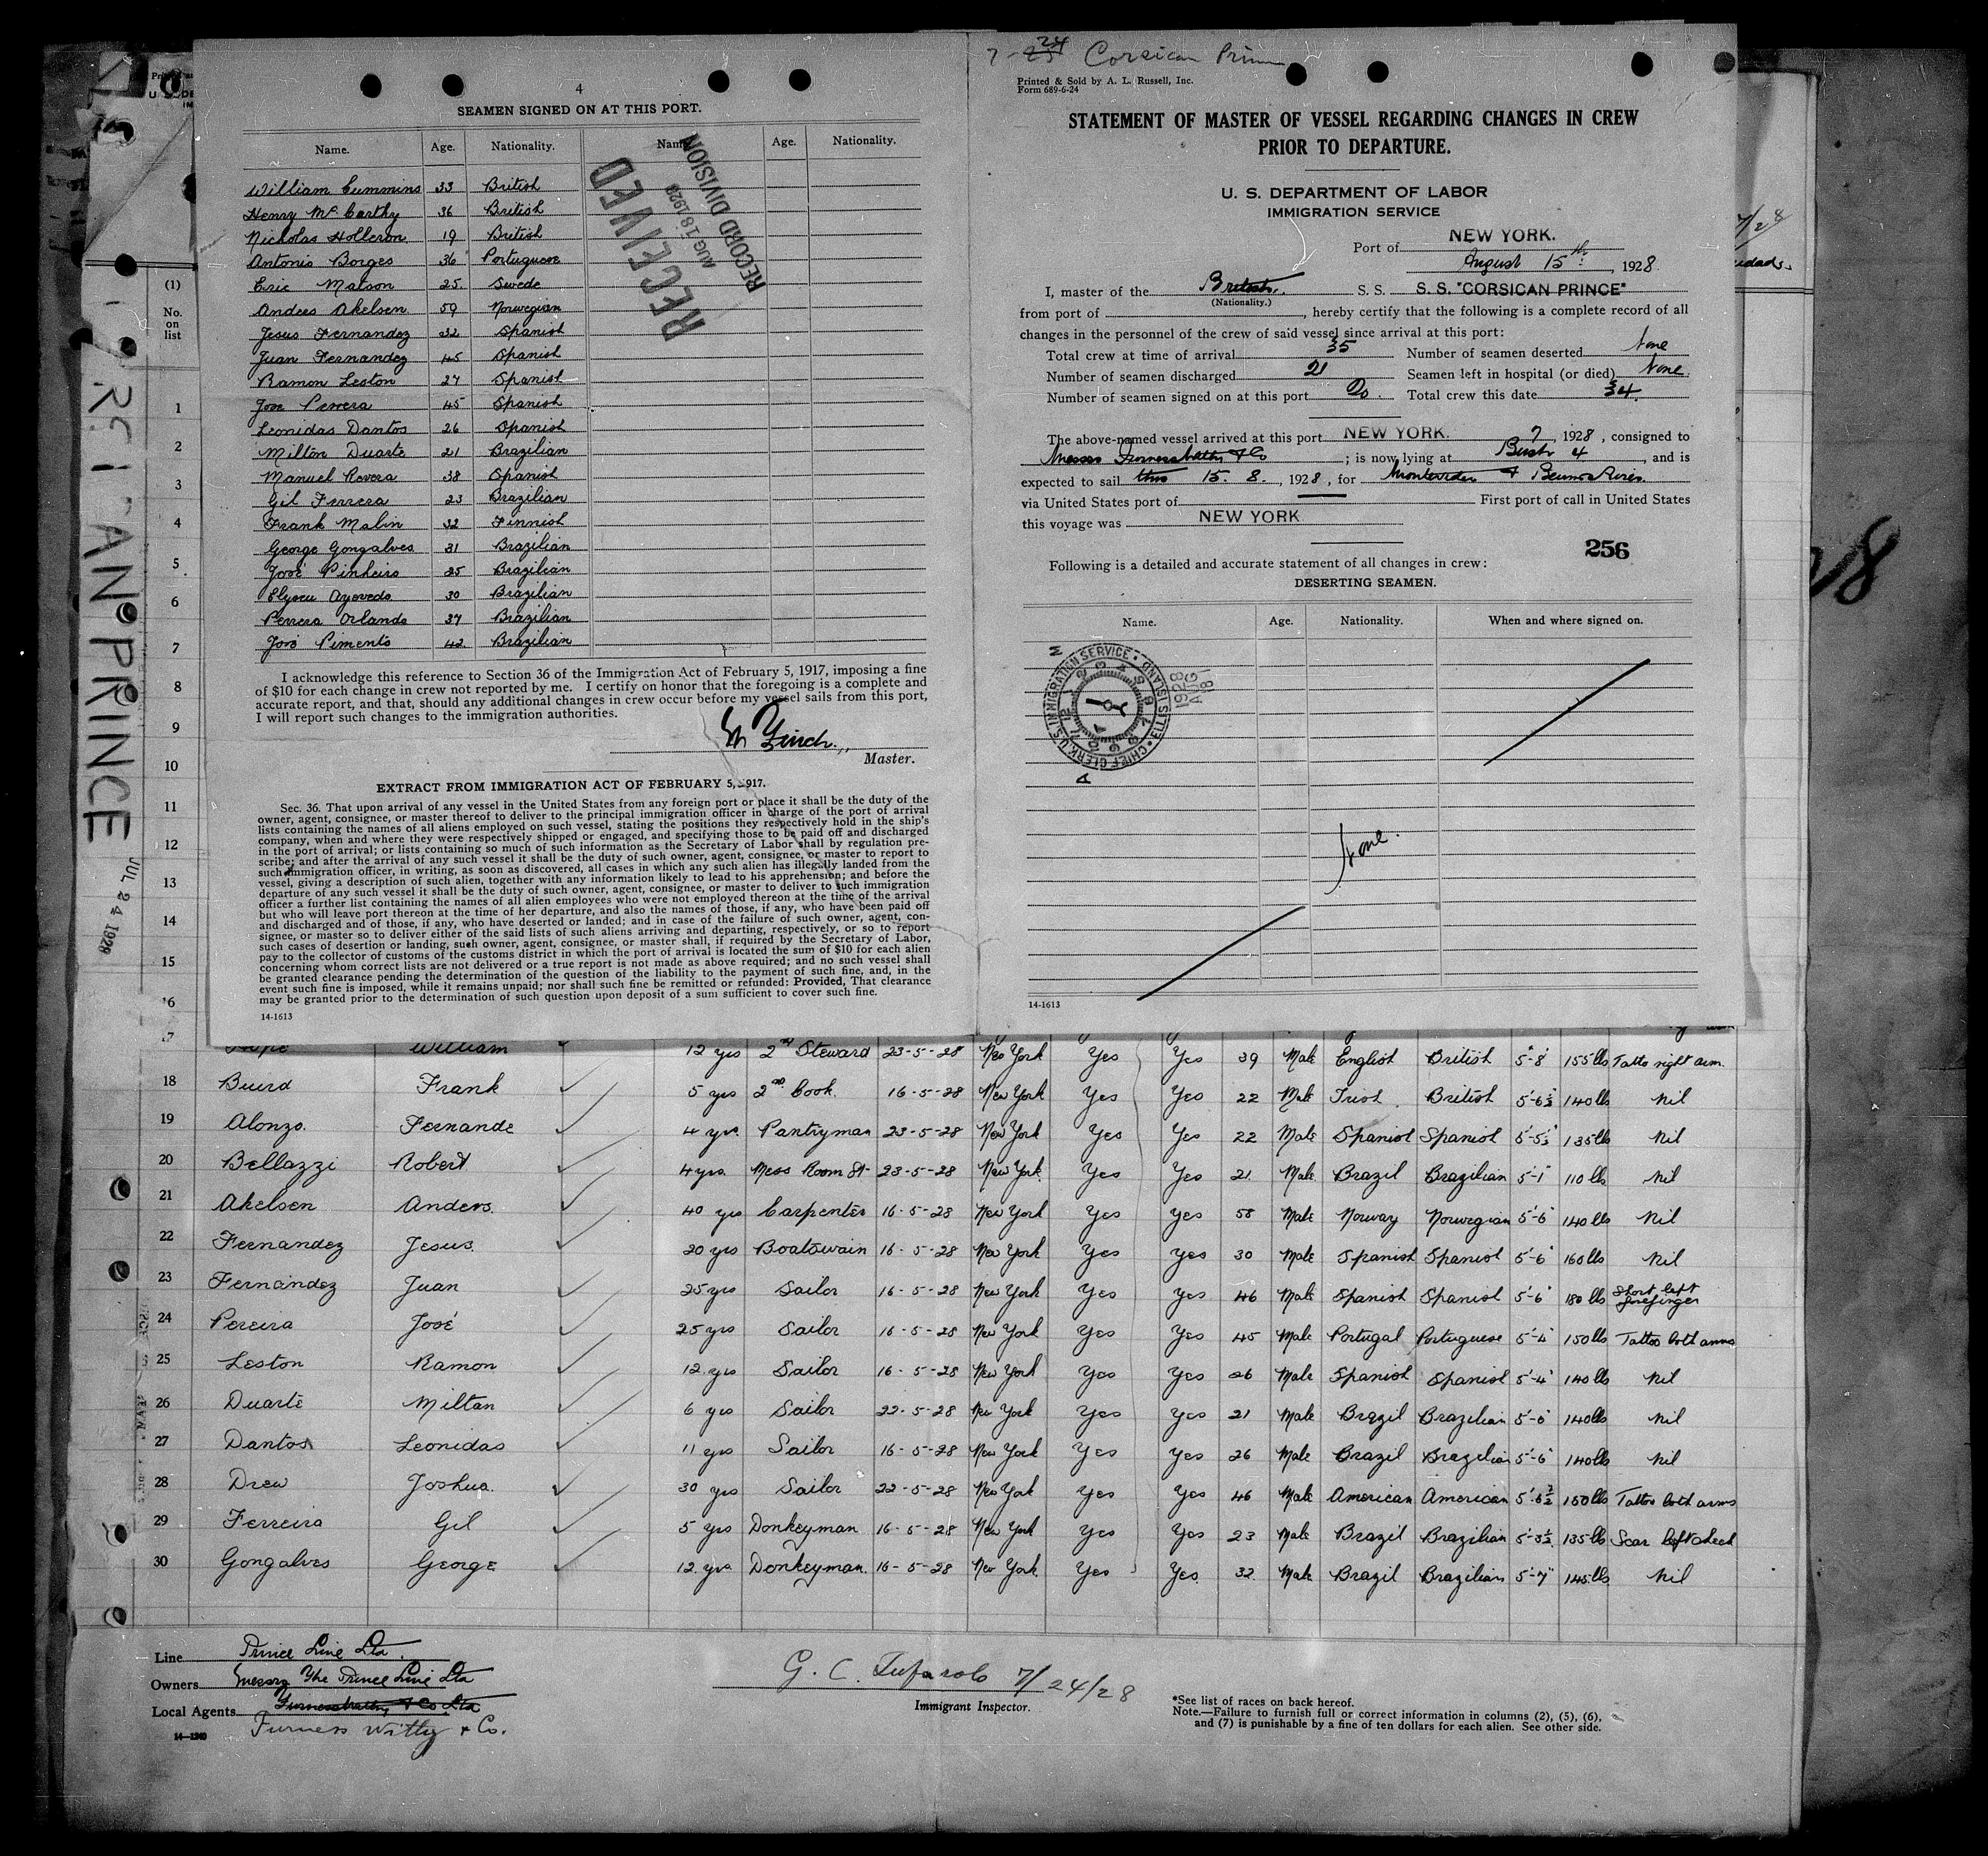 4
SEAMEN SIGNED ON AT THIS PORT.
Name. Age. Nationality. Name. Age. Nationality.
William Cummins 33 British
Henry McCarthy 36 British
Nicholas Holleron 19 British
Antonio Borges 36 Portuguese
Eric Matson 25. Swede
Andees Akelsen 59 Norwegian
Jesus Fernandez 32 Spanish
Juan Fernandez 45 Spanish
Ramon Leston 27 Spanish
Jose Perrera 45 Spanish
Leonidas Dantos 26 Spanish
Milton Duarte 21 Brazilian
Manuel Rovera 38 Spanish
Gil Ferrera 23 Brazilian
Frank Malin 32 Finnish
George Gongalves 31 Brazilian
José Pinheiro 25 Brazilian
Elyseu Azevedo 30 Brazilian
Perrera Orlando 37 Brazilian
José Pimento 42. Brazilian
RECEIVED
AUG 18 1928
RECORD DIVISION
I acknowledge this reference to Section 36 of the Immigration Act of February 5, 1917, imposing a fine
of $10 for each change in crew not reported by me. I certify on honor that the foregoing is a complete and
accurate report, and that, should any additional changes in crew occur before my vessel sails from this port,
I will report such changes to the immigration authorities.
Finch.
Master.
EXTRACT FROM IMMIGRATION ACT OF FEBRUARY 5, 1917.
Sec. 36. That upon arrival of any vessel in the United States from any foreign port or place it shall be the duty of the
owner, agent, consignee, or master thereof to deliver to the principal immigration officer in charge of the port of arrival
lists containing the names of all aliens employed on such vessel, stating the positions they respectively hold in the ship's
company, when and where they were respectively shipped or engaged, and specifying those to be paid off and discharged
in the port of arrival; or lists containing so much of such information as the Secretary of Labor shall by regulation pre-
scribe; and after the arrival of any such vessel it shall be the duty of such owner, agent, consignee, or master to report to
such immigration officer, in writing, as soon as discovered, all cases in which any such alien has illegally landed from the
vessel, giving a description of such alien, together with any information likely to lead to his apprehension; and before the
departure of any such vessel it shall be the duty of such owner, agent, consignee, or master to deliver to such immigration
officer a further list containing the names of all alien employees who were not employed thereon at the time of the arrival
but who will leave port thereon at the time of her departure, and also the names of those, if any, who have been paid off
and discharged and of those, if any, who have deserted or landed; and in case of the failure of such owner, agent, con-
signee, or master so to deliver either of the said lists of such aliens arriving and departing, respectively, or so to report
such cases of desertion or landing, such owner, agent, consignee, or master shall, if required by the Secretary of Labor,
pay to the collector of customs of the customs district in which the port of arrival is located the sum of $10 for each alien
concerning whom correct lists are not delivered or a true report is not made as above required; and no such vessel shall
be granted clearance pending the determination of the question of the liability to the payment of such fine, and, in the
event such fine is imposed, while it remains unpaid; nor shall such fine be remitted or refunded: Provided, That clearance
may be granted prior to the determination of such question upon deposit of a sum sufficient to cover such fine.
14-1613
7-24 Corsican Prince
Printed & Sold by A. L. Russell, Inc.
Form 689-6-24
STATEMENT OF MASTER OF VESSEL REGARDING CHANGES IN CREW
PRIOR TO DEPARTURE.
U. S. DEPARTMENT OF LABOR
IMMIGRATION SERVICE
Port of NEW YORK.
August 15th, 1928.
I, master of the British S. S. S. S. "CORSICAN PRINCE"
(Nationality.)
from port of , hereby certify that the following is a complete record of all
changes in the personnel of the crew of said vessel since arrival at this port:
Total crew at time of arrival 35 Number of seamen deserted None
Number of seamen discharged 21 Seamen left in hospital (or died) None
Number of seamen signed on at this port 20. Total crew this date 34.
The above-named vessel arrived at this port NEW YORK. 7, 1928, consigned to
Messrs Furness Withy & Co ; is now lying at Bush 4, and is
expected to sail this 15. 8., 1928, for Montevideo & Buenos Aires
via United States port of First port of call in United States
this voyage was NEW YORK
256
Following is a detailed and accurate statement of all changes in crew:
DESERTING SEAMEN.
Name. Age. Nationality. When and where signed on.
CHIEF CLERK, U.S. IMMIGRATION SERVICE • ELLIS ISLAND •
1928 AUG 18
None.
14-1613
(1)
No.
on
list
1
2
3
4
5
6
7
8
9
10
11
12
13
14
15
16
CORSICAN PRINCE
JUL 24 1928
17 William 12 yrs 2nd Steward 23-5-28 New York Yes Yes 39 Male English British 5'-8" 155 lbs Tatto right arm.
18 Buird Frank 5 yrs 2nd Cook. 16-5-28 New York Yes Yes 22 Male Irish British 5'-6½" 140 lbs Nil
19 Alonzo. Fernande 4 yrs Pantryman 23-5-28 New York Yes Yes 22 Male Spanish Spanish 5'-5½" 135 lbs Nil
20 Bellazzi Robert 4 yrs. Mess Room St. 23-5-28 New York. Yes Yes 21 Male Brazil Brazilian 5'-1" 110 lbs Nil
21 Akelsen Anders. 40 yrs Carpenter 16-5-28 New York Yes Yes 58 Male Norway Norwegian 5'-6" 140 lbs Nil
22 Fernandez Jesus. 20 yrs Boatswain 16-5-28 New York Yes Yes 30 Male Spanish Spanish 5'-6" 160 lbs Nil
23 Fernandez Juan 25 yrs Sailor 16-5-28 New York Yes Yes 46 Male Spanish Spanish 5'-6" 180 lbs Short left forefinger
24 Pereira José 25 yrs Sailor 16-5-28 New York Yes Yes 45 Male Portugal Portuguese 5'-4" 150 lbs Tattoo both arms
25 Leston Ramon 12 yrs Sailor 16-5-28 New York Yes Yes 26 Male Spanish Spanish 5'-4" 140 lbs Nil
26 Duarte Miltan 6 yrs Sailor 22-5-28 New York Yes Yes 21 Male Brazil Brazilian 5'-6" 140 lbs Nil
27 Dantos Leonidas 11 yrs Sailor 16-5-28 New York Yes Yes 26 Male Brazil Brazilian 5'-6" 140 lbs Nil
28 Drew Joshua. 30 yrs Sailor 22-5-28 New York Yes Yes 46 Male American American 5'-6½" 150 lbs Tattoo both arms
29 Ferreira Gil 5 yrs Donkeyman 16-5-28 New York Yes Yes 23 Male Brazil Brazilian 5'-3½" 135 lbs Scar left cheek
30 Gongalves George 12 yrs. Donkeyman. 16-5-28 New York. Yes Yes. 32 Male Brazil Brazilian 5'-7" 145 lbs Nil
Line Prince Line Ltd.
Owners Messrs The Prince Line Ltd
Local Agents Furness Withy & Co Ltd
Furness Withy & Co.
14-1240
G. C. Tufarolo 7/24/28
Immigrant Inspector.
*See list of races on back hereof.
Note.—Failure to furnish full or correct information in columns (2), (5), (6),
and (7) is punishable by a fine of ten dollars for each alien. See other side.